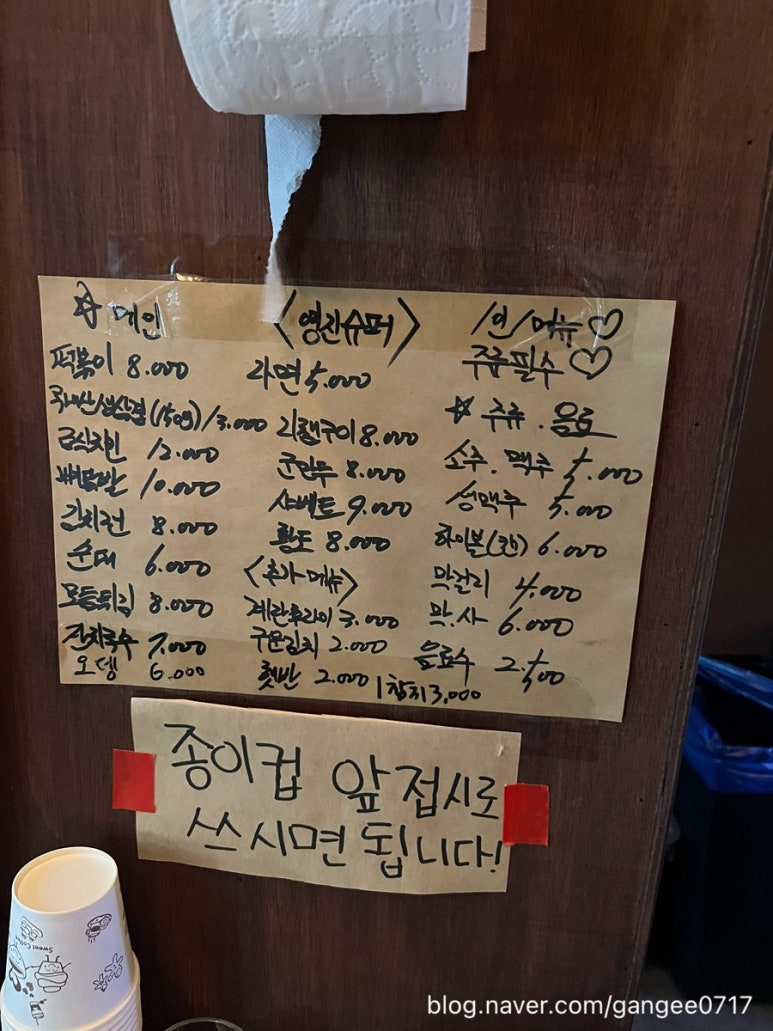 ☆ 메인
떡볶이 8.000
국내산생삼겹(150g) 13.000
급식치킨 12.000
뼈닭발 10.000
김치전 8.000
순대 6.000
모듬튀김 8.000
잔치국수 7.000
오뎅 6.000
<영진슈퍼>
라면 5.000
리챔구이 8.000
군만두 8.000
샤베트 9.000
황도 8.000
<추가메뉴>
계란후라이 3.000
구운김치 2.000
햇반 2.000 | 참치 3,000
1인 1메뉴♡
주류필수♡
☆ 주류.음료
소주.맥주 5.000
생맥주 5.000
하이볼(캔) 6.000
막걸리 4.000
막.사 6.000
음료수 2.500
종이컵 앞접시로
쓰시면 됩니다!
Sweet
blog.naver.com/gangee0717